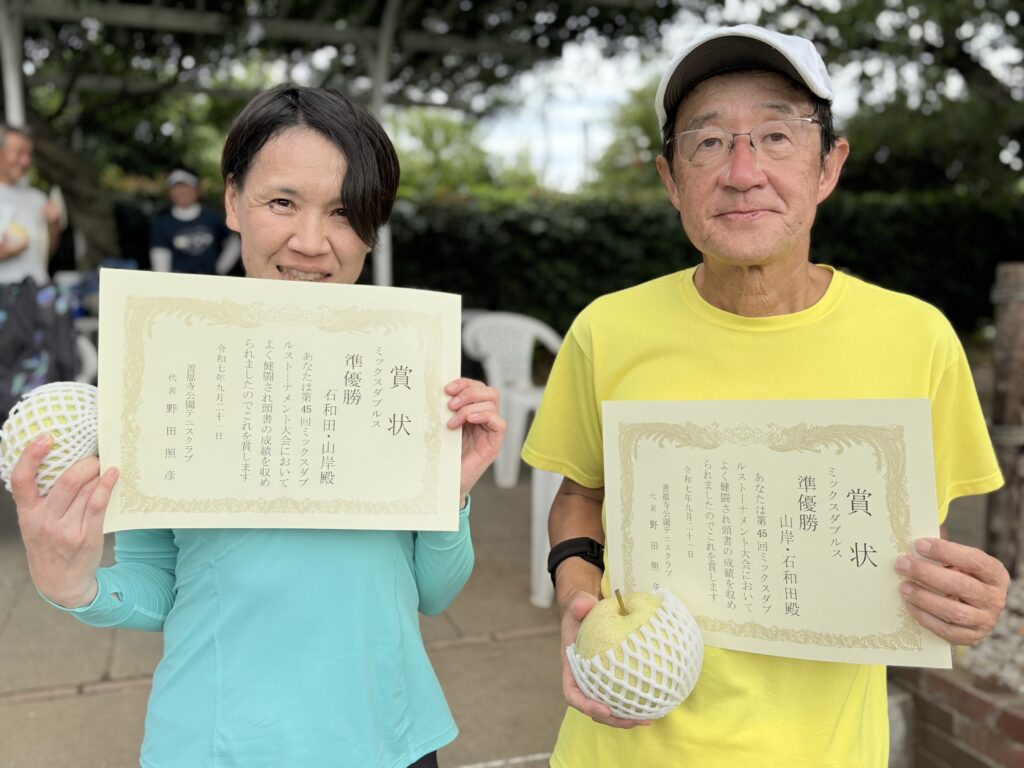 賞状
ミックスダブルス
準優勝
石和田・山岸殿
あなたは第45回ミックスダブ
ルストーナメント大会において
よく健闘され頭書の成績を収め
られましたのでこれを賞します
令和七年九月二十一日
善福寺公園テニスクラブ
代表 野田照彦
賞状
ミックスダブルス
準優勝
山岸・石和田殿
あなたは第45回ミックスダブ
ルストーナメント大会において
よく健闘され頭書の成績を収め
られましたのでこれを賞します
令和七年九月二十一日
善福寺公園テニスクラブ
代表 野田照彦